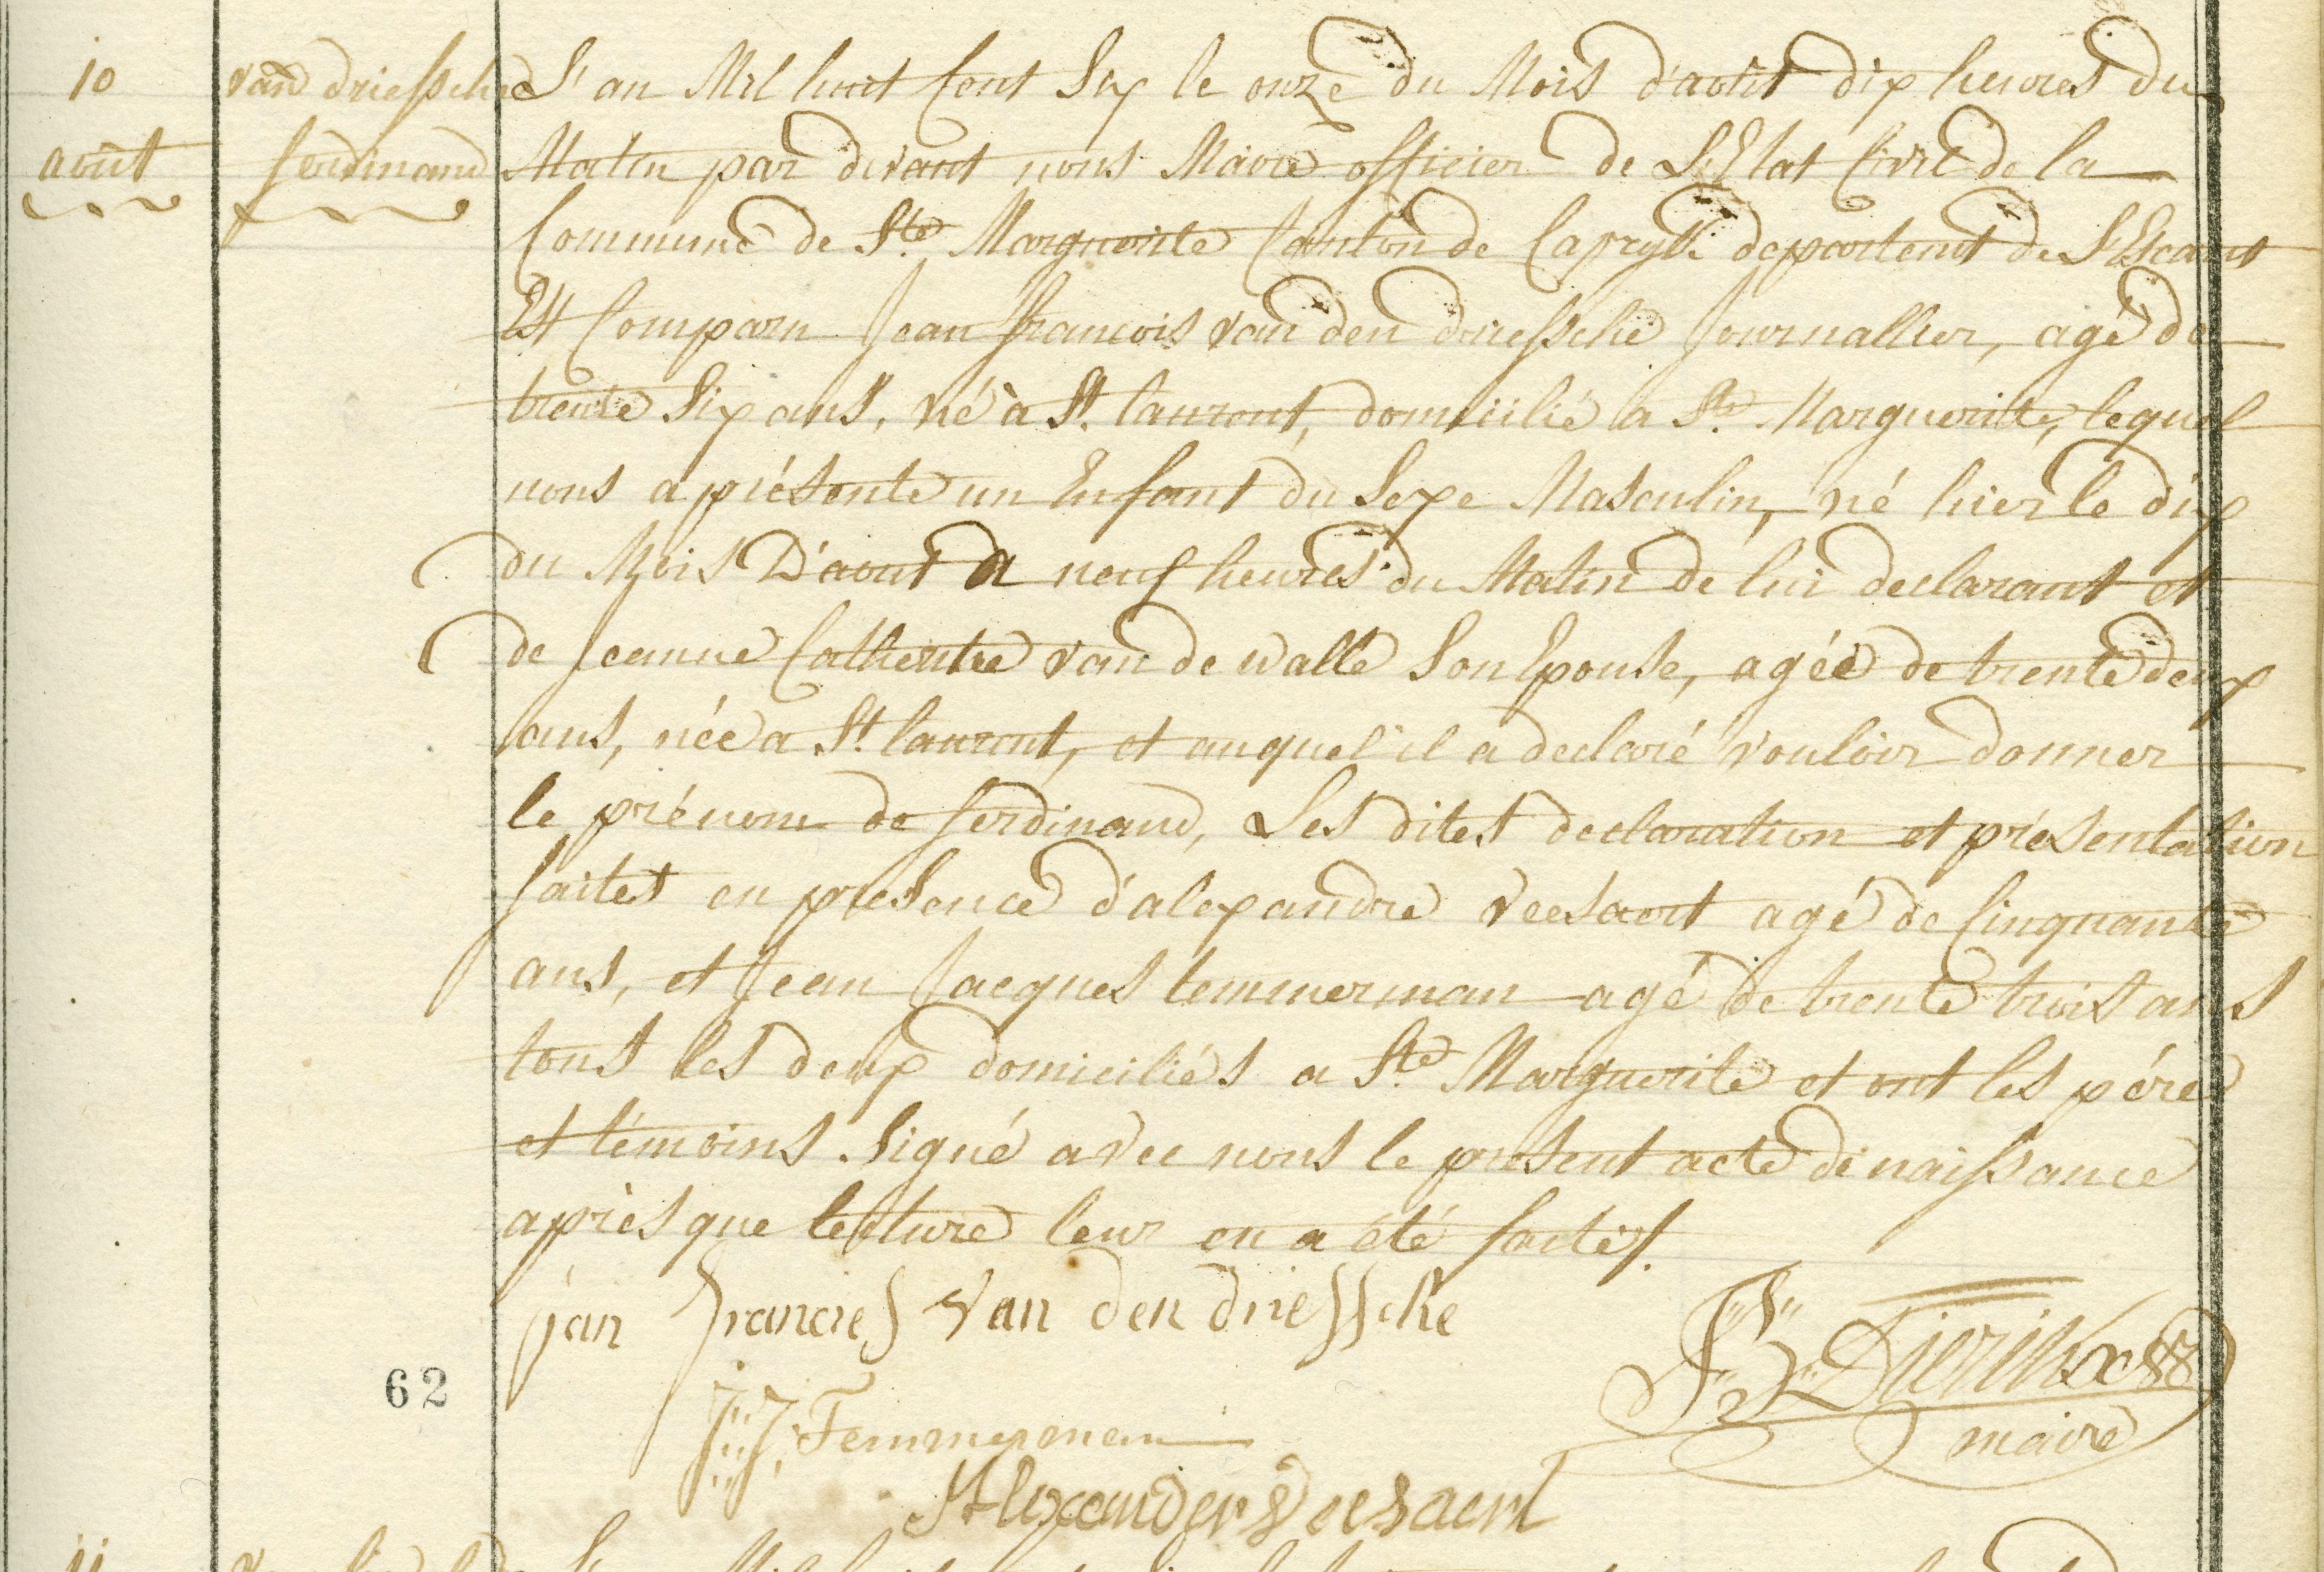 10
août
van driessche
ferdinand
L'an Mil huit Cent Six le onze du Mois d'août dix heures du
Matin par devant nous Maire officier de L'Etat Civil de la
Commune de Ste Marguerite Canton de Capryk departemt de L'Escaut
Est Comparu Jean francois van den driessche Journallier, agé de
trente Six ans, né à St. laurent, domicilié a Ste. Marguerite, lequel
nous a présenté un Enfant du Sexe Masculin, né hier le dix
du Mois D'aout a neuf heures du Matin de lui declarant et
de Jeanne Catherine van de walle Son Epouse, agée de trente deux
ans, née a St. laurent, et auquel il a declaré vouloir donner
le prénom de ferdinand, Les dites declaration et présentation
faites en presence d'alexandre Veesaert agé de Cinquante
ans, et Jean Jacques temmerman agé de trente trois ans
tous les deux domiciliés a Ste. Marguerite et ont les pére
et témoins Signé avec nous le present acte de naissance
après que lecture leur en a été faite.
jan francies van den driessche
J J Temmerman
Dierikx
maire
62
Alexander Veesaert
11